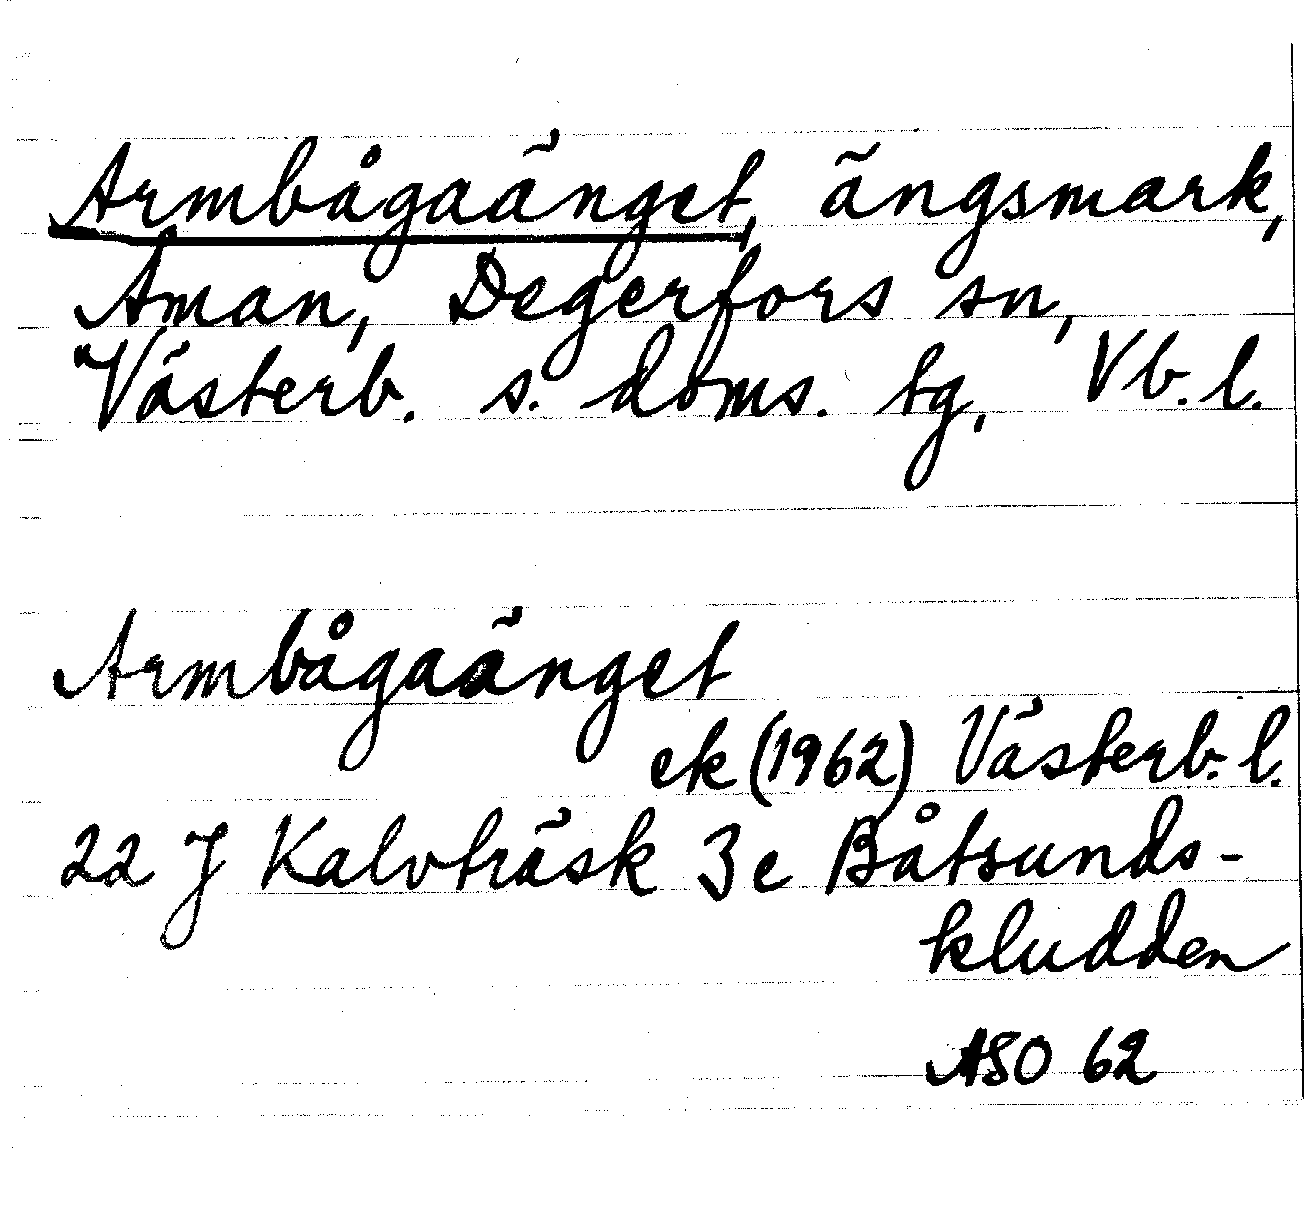 Armbågaänget, ängsmark,
Åman, Degerfors sn,
Västerb. s. doms. tg. Vb. l.
Armbågaänget
ek (1962) Västerb. l.
22 J Kalvträsk 3e Båtsunds-
kludden
ASO 62